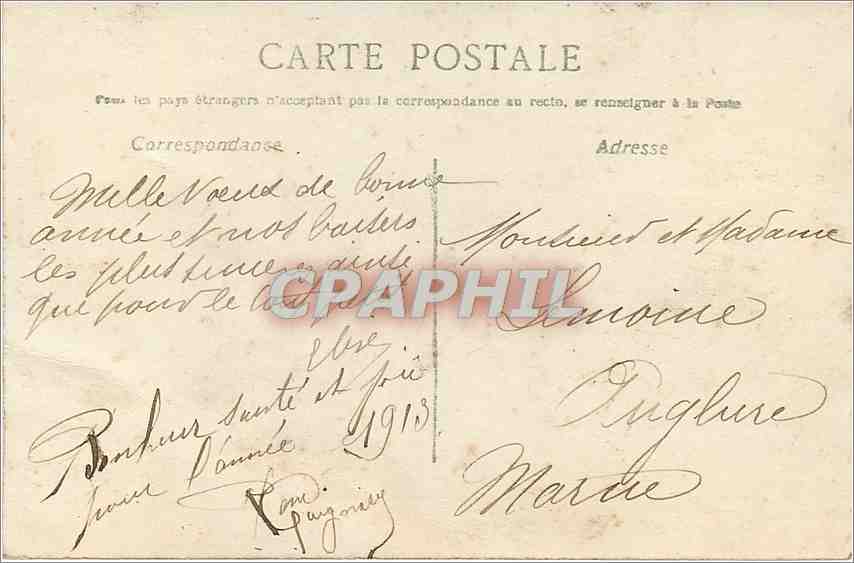 CARTE POSTALE
Pour les pays étrangers n'acceptant pas la correspondance au recto, se renseigner à la Poste
Correspondance
Adresse
Mille Voeux de bonne
année et nos baisers
les plus sincères ainsi
que pour le tout petit
Bonheur santé et joie
pour l'année 1913
Monsieur et Madame
Lemoine
Anglure
Marne
CPAPHIL